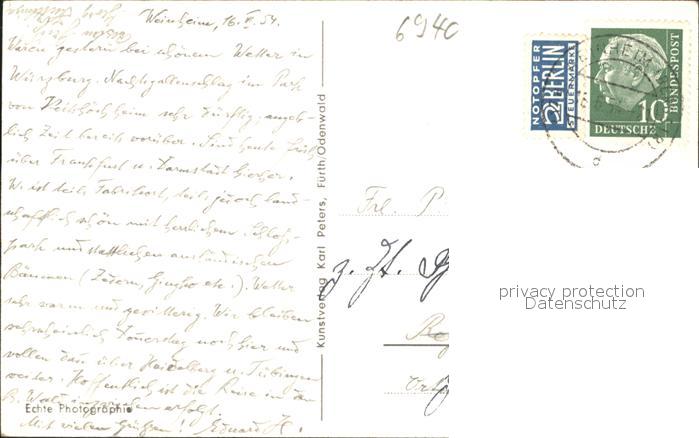 Weinheim, 16. VI. 54.
6940
Waren gestern bei schönem Wetter in
Würzburg. Nachtigallenschlag im Park
von Veitshöchheim sehr dürftig, angeb-
lich Zeit bereits vorüber. Sind heute früh
über Frankfurt u. Darmstadt hierher.
W. ist teils Fabrikort, teils jedoch land-
schaftlich schön mit herrlichem Schloß-
park und stattlichen ausländischen
Bäumen (Zedern, Gingko etc.). Wetter
sehr warm und gewitterig. Wir bleiben
wahrscheinlich Donnerstag noch hier und
wollen dann über Heidelberg u. Tübingen
weiter. Hoffentlich ist die Reise in den
B. Wald inzwischen erfolgt.
Mit vielen Grüßen! Eduard H.
Echte Photographie
Kunstverlag Karl Peters, Fürth/Odenwald
NOTOPFER
2 BERLIN
STEUERMARKE
10
DEUTSCHE
BUNDESPOST
Frl.
z. Zt.
privacy protection
Datenschutz